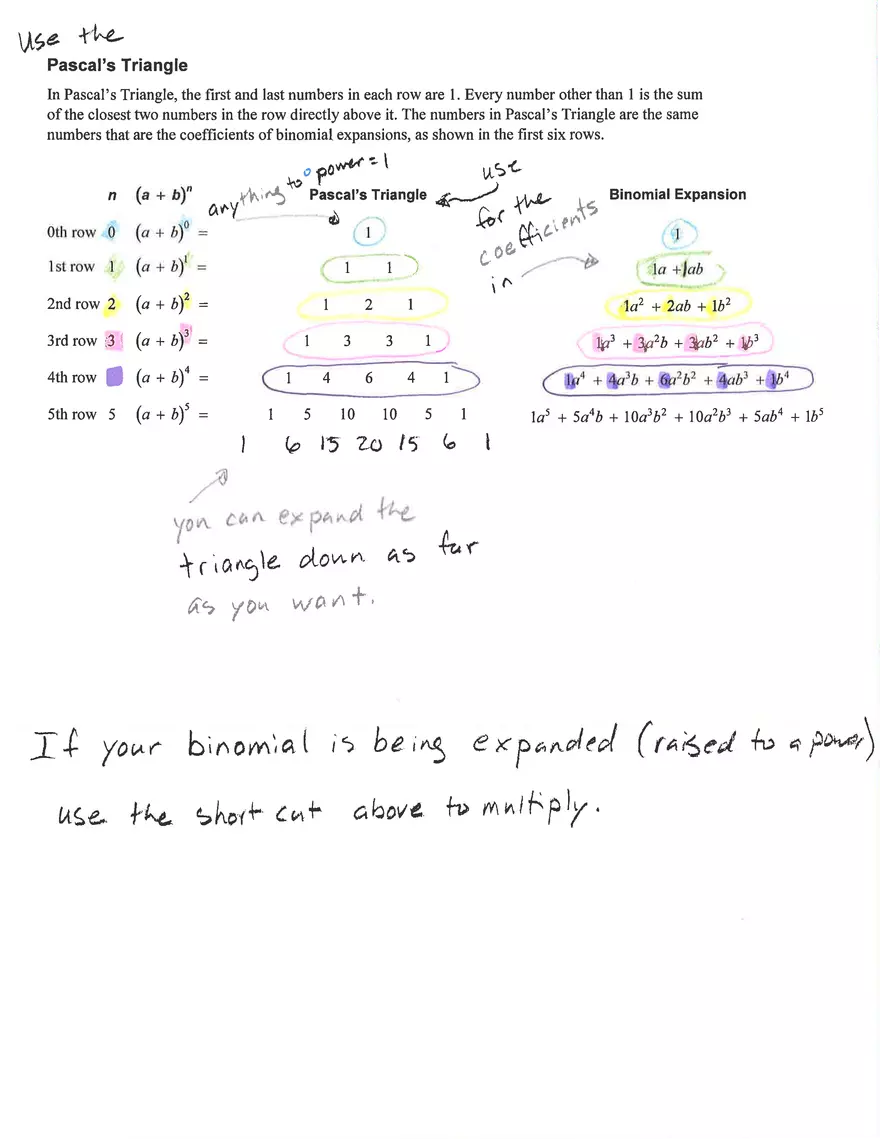 Use the
Pascal's Triangle
In Pascal's Triangle, the first and last numbers in each row are 1. Every number other than 1 is the sum
of the closest two numbers in the row directly above it. The numbers in Pascal's Triangle are the same
numbers that are the coefficients of binomial expansions, as shown in the first six rows.
anything to 0 power = 1
use
for the
coefficients
in
n (a + b)ⁿ Pascal's Triangle Binomial Expansion
0th row 0 (a + b)⁰ = 1 1
1st row 1 (a + b)¹ = 1 1 1a + 1ab
2nd row 2 (a + b)² = 1 2 1 1a² + 2ab + 1b²
3rd row 3 (a + b)³ = 1 3 3 1 1a³ + 3a²b + 3ab² + 1b³
4th row (a + b)⁴ = 1 4 6 4 1 1a⁴ + 4a³b + 6a²b² + 4ab³ + 1b⁴
5th row 5 (a + b)⁵ = 1 5 10 10 5 1 1a⁵ + 5a⁴b + 10a³b² + 10a²b³ + 5ab⁴ + 1b⁵
1 6 15 20 15 6 1
you can expand the
triangle down as far
as you want.
If your binomial is being expanded (raised to a power)
use the short cut above to multiply.